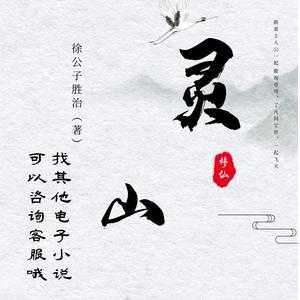 灵
山
徐公子胜治（著）
修仙
找其他电子小说
可以咨询客服哦